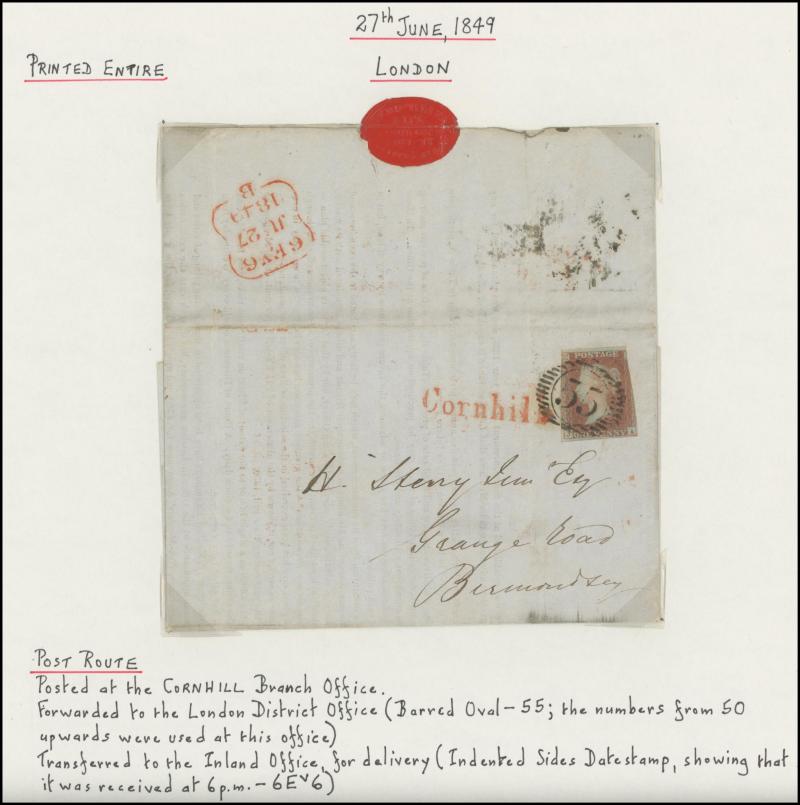 27th JUNE, 1849
PRINTED ENTIRE
LONDON
B
1849
JU 27
6 EV 6
POSTAGE
Cornhill
55
ONE PENNY
H. Sterry Jun Esq
Grange Road
Bermondsey
POST ROUTE
Posted at the CORNHILL Branch Office.
Forwarded to the London District Office (Barred Oval - 55; the numbers from 50
upwards were used at this office)
Transferred to the Inland Office, for delivery (Indented Sides Datestamp, showing that
it was received at 6p.m. - 6Ev6)